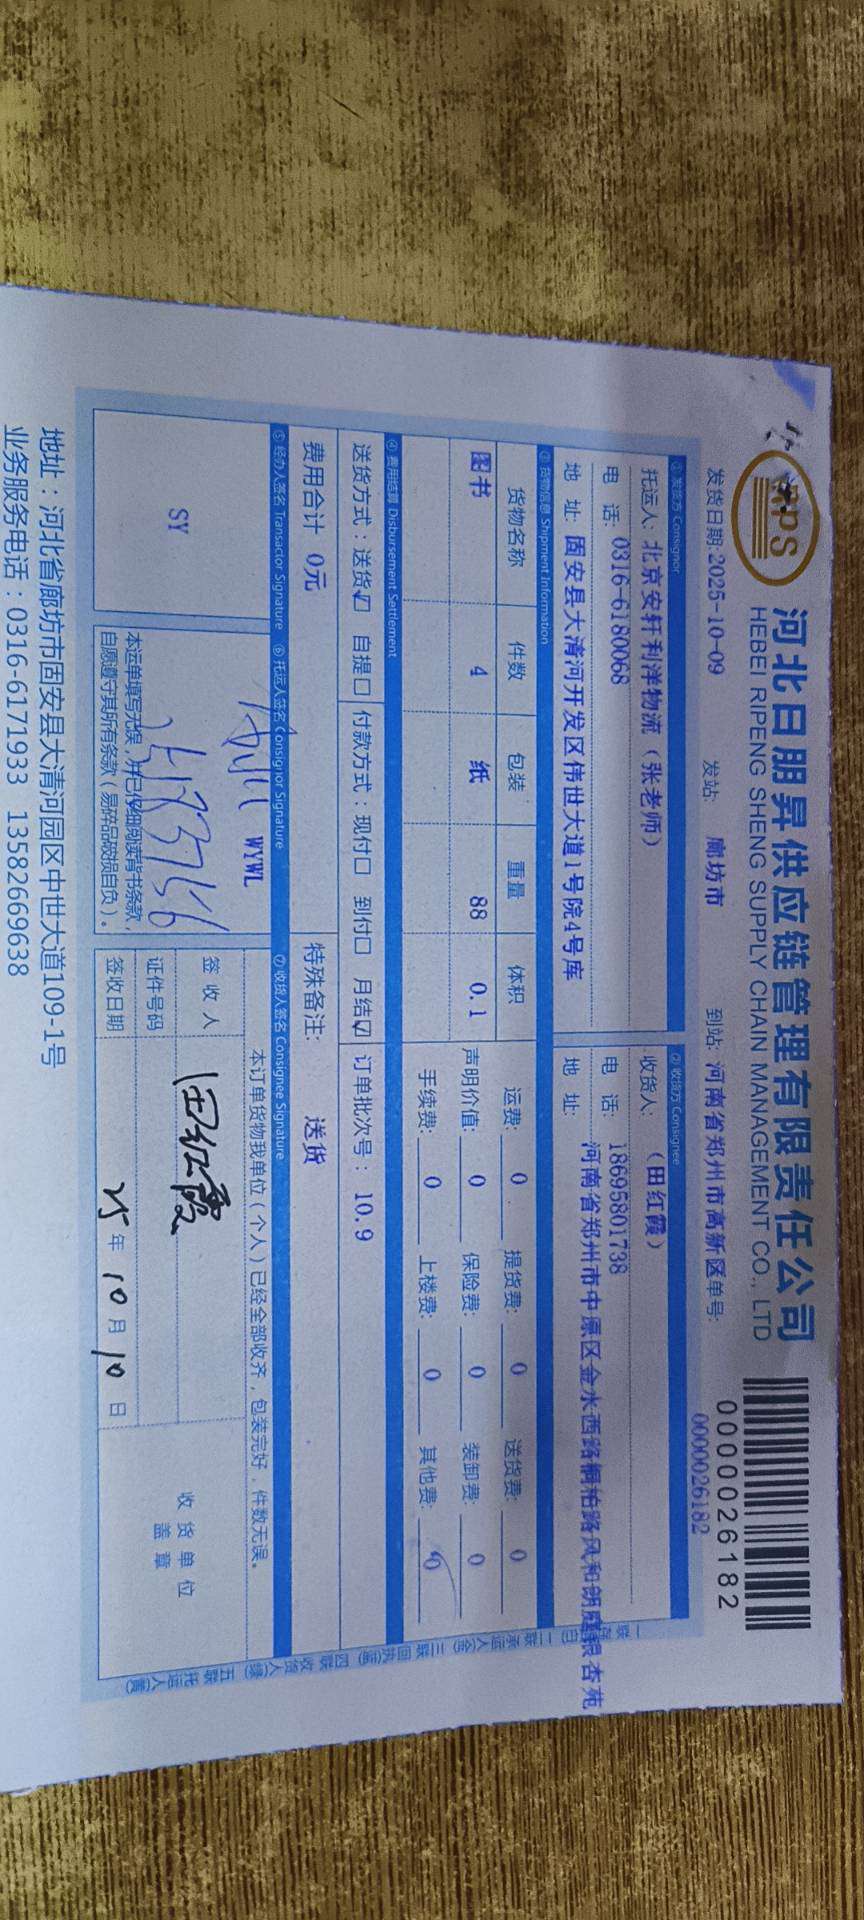 RPS
河北日朋昇供应链管理有限责任公司
HEBEI RIPENG SHENG SUPPLY CHAIN MANAGEMENT CO., LTD
0000026182
发货日期:2025-10-09 发站: 廊坊市 到站: 河南省郑州市高新区 单号: 0000026182
① 发货方 Consignor ② 收货方 Consignee
托运人: 北京安轩利洋物流（张老师） 收货人: （田红霞）
电 话: 0316-6180068 电 话: 18695801738
地 址: 固安县大清河开发区伟世大道1号院4号库 地 址: 河南省郑州市中原区金水西路桐柏路风和朗庭银杏苑
③ 货物信息 Shipment Information
货物名称 件数 包装 重量 体积 运费: 0 提货费: 0 送货费: 0
图书 4 纸 88 0.1 声明价值: 0 保险费: 0 装卸费: 0
手续费: 0 上楼费: 0 其他费: 0
④ 费用结算 Disbursement Settlement
送货方式：送货☑ 自提☐ 付款方式：现付☐ 到付☐ 月结☑ 订单批次号：10.9
费用合计 0元 特殊备注: 送货
⑤ 经办人签名 Transactor Signature ⑥ 托运人签名 Consignor Signature ⑦ 收货人签名 Consignee Signature
SY
WYWL
本运单填写无误，并已仔细阅读背书条款，
自愿遵守其所有条款（易碎品破损自负）。
本订单货物我单位（个人）已经全部收齐，包装完好，件数无误。
签 收 人 田红霞
证件号码
签收日期 25 年 10 月 10 日
收 货 单 位
盖 章
地址：河北省廊坊市固安县大清河园区中世大道109-1号
业务服务电话：0316-6171933 13582669638